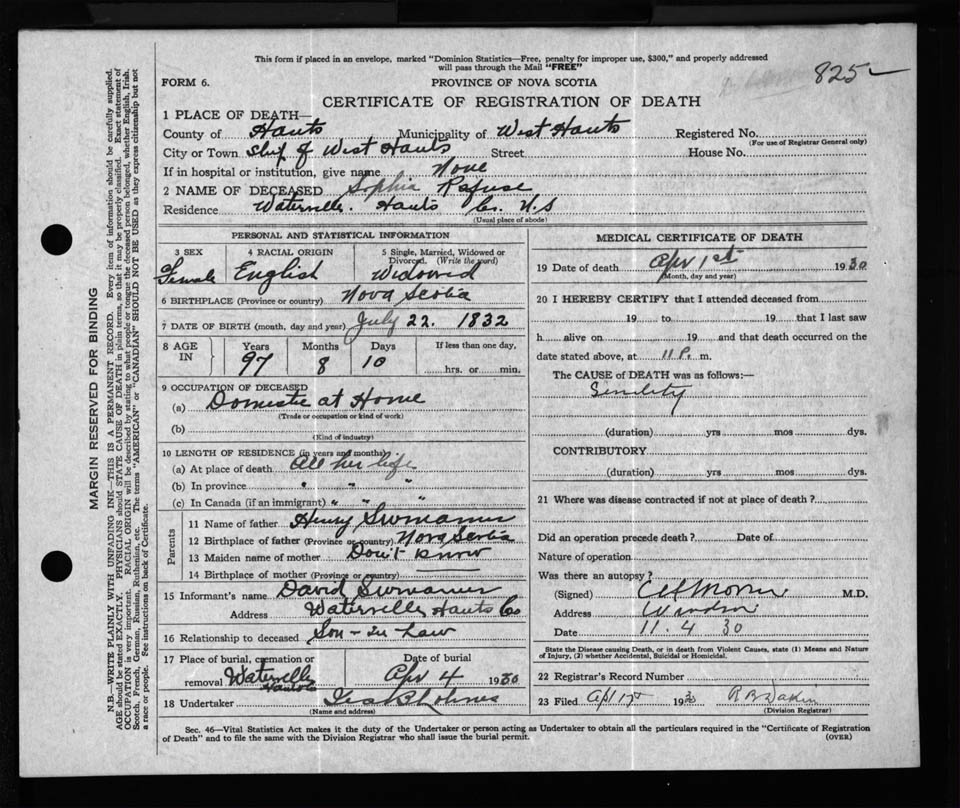 This form if placed in an envelope, marked "Dominion Statistics—Free, penalty for improper use, $300," and properly addressed
will pass through the Mail "FREE"
825
FORM 6. PROVINCE OF NOVA SCOTIA
CERTIFICATE OF REGISTRATION OF DEATH
1 PLACE OF DEATH—
County of Hants Municipality of West Hants Registered No.
(For use of Registrar General only)
City or Town Shp of West Hants Street House No.
If in hospital or institution, give name None
2 NAME OF DECEASED Sophia Rafuse
Residence Waterville. Hants Co. N.S
(Usual place of abode)
PERSONAL AND STATISTICAL INFORMATION
3 SEX 4 RACIAL ORIGIN 5 Single, Married, Widowed or
Divorced. (Write the word)
Female English Widowed
6 BIRTHPLACE (Province or country) Nova Scotia
7 DATE OF BIRTH (month, day and year) July 22. 1832
8 AGE IN Years Months Days If less than one day,
97 8 10 hrs. or min.
9 OCCUPATION OF DECEASED
(a) Domestic at Home
(Trade or occupation or kind of work)
(b)
(Kind of industry)
10 LENGTH OF RESIDENCE (in years and months)
(a) At place of death All her life
(b) In province " " "
(c) In Canada (if an immigrant) " " "
Parents
11 Name of father Henry
12 Birthplace of father (Province or country) Nova Scotia
13 Maiden name of mother Don't know
14 Birthplace of mother (Province or country)
15 Informant's name David
Address Waterville Hants Co
16 Relationship to deceased Son-in-Law
17 Place of burial, cremation or Date of burial
removal Waterville Hants Co Apr 4 1930
18 Undertaker
(Name and address)
MEDICAL CERTIFICATE OF DEATH
19 Date of death Apr 1st 1930
(Month, day and year)
20 I HEREBY CERTIFY that I attended deceased from
19 to 19 that I last saw
h alive on 19 and that death occurred on the
date stated above, at 11 P. m.
The CAUSE of DEATH was as follows:—
Senility
(duration) yrs mos dys.
CONTRIBUTORY
(duration) yrs mos dys.
21 Where was disease contracted if not at place of death?
Did an operation precede death? Date of
Nature of operation
Was there an autopsy?
(Signed) M.D.
Address Windsor
Date 11. 4 30
State the Disease causing Death, or in death from Violent Causes, state (1) Means and Nature
of Injury, (2) whether Accidental, Suicidal or Homicidal.
22 Registrar's Record Number
23 Filed Apr 1930
(Division Registrar)
Sec. 46—Vital Statistics Act makes it the duty of the Undertaker or person acting as Undertaker to obtain all the particulars required in the "Certificate of Registration
of Death" and to file the same with the Division Registrar who shall issue the burial permit. (OVER)
MARGIN RESERVED FOR BINDING
N.B.—WRITE PLAINLY WITH UNFADING INK—THIS IS A PERMANENT RECORD. Every item of information should be carefully supplied.
AGE should be stated EXACTLY. PHYSICIANS should STATE CAUSE OF DEATH in plain terms, so that it may be properly classified. Exact statement of
OCCUPATION is very important. RACIAL ORIGIN will be described by stating to what people or tongue the deceased person belonged, whether English, Irish,
Scotch, French, German, Russian, Ruthenian, etc. The terms "AMERICAN" or "CANADIAN" SHOULD NOT BE USED as they express citizenship but not
a race or people. See instructions on back of Certificate.